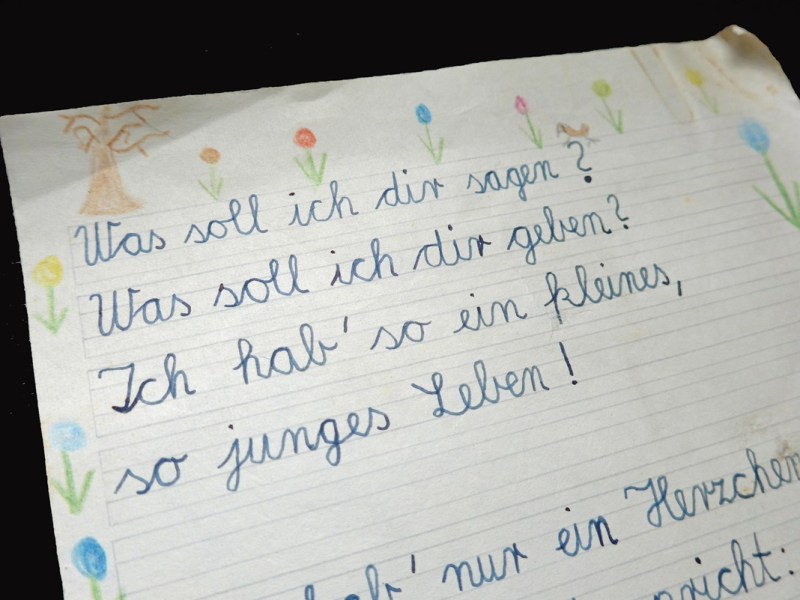 Was soll ich dir sagen?
Was soll ich dir geben?
Ich hab' so ein kleines,
so junges Leben!
hab' nur ein Herzchen
spricht: